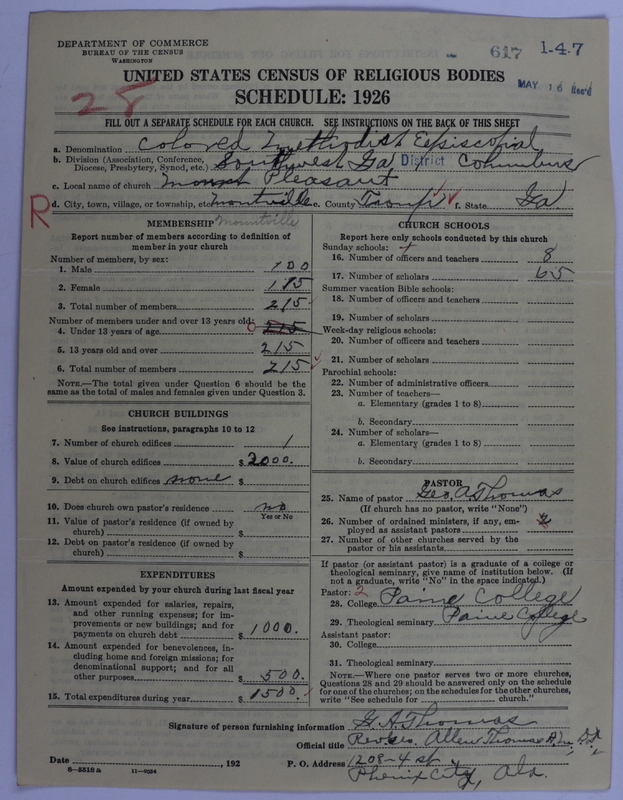 DEPARTMENT OF COMMERCE
BUREAU OF THE CENSUS
WASHINGTON
617 1-4-7
MAY 16 Rec'd
UNITED STATES CENSUS OF RELIGIOUS BODIES
SCHEDULE: 1926
28
FILL OUT A SEPARATE SCHEDULE FOR EACH CHURCH. SEE INSTRUCTIONS ON THE BACK OF THIS SHEET
a. Denomination Colored Methodist Episcopal
b. Division (Association, Conference, Diocese, Presbytery, Synod, etc.) Southwest Ga District Columbus
c. Local name of church Pleasant
R
d. City, town, village, or township, etc. Montville e. County Troup f. State Ga
Mountville
MEMBERSHIP
Report number of members according to definition of
member in your church
Number of members, by sex:
1. Male 100
2. Female 115
3. Total number of members 215
Number of members under and over 13 years old:
4. Under 13 years of age 0 215
5. 13 years old and over 215
6. Total number of members 215
NOTE.—The total given under Question 6 should be the
same as the total of males and females given under Question 3.
CHURCH BUILDINGS
See instructions, paragraphs 10 to 12
7. Number of church edifices 1
8. Value of church edifices $ 2000.
9. Debt on church edifices none $
10. Does church own pastor's residence no
Yes or No
11. Value of pastor's residence (if owned by
church) $
12. Debt on pastor's residence (if owned by
church) $
EXPENDITURES
Amount expended by your church during last fiscal year
13. Amount expended for salaries, repairs,
and other running expenses; for im-
provements or new buildings; and for
payments on church debt $ 1000.
14. Amount expended for benevolences, in-
cluding home and foreign missions; for
denominational support; and for all
other purposes $ 500.
15. Total expenditures during year $ 1500.
CHURCH SCHOOLS
Report here only schools conducted by this church
Sunday schools:
16. Number of officers and teachers 8
17. Number of scholars 65
Summer vacation Bible schools:
18. Number of officers and teachers
19. Number of scholars
Week-day religious schools:
20. Number of officers and teachers
21. Number of scholars
Parochial schools:
22. Number of administrative officers
23. Number of teachers—
a. Elementary (grades 1 to 8)
b. Secondary
24. Number of scholars—
a. Elementary (grades 1 to 8)
b. Secondary
PASTOR
25. Name of pastor Geo. A. Thomas
(If church has no pastor, write "None")
26. Number of ordained ministers, if any, em-
ployed as assistant pastors
27. Number of other churches served by the
pastor or his assistants
If pastor (or assistant pastor) is a graduate of a college or
theological seminary, give name of institution below. (If
not a graduate, write "No" in the space indicated.)
Pastor: 2
28. College Paine College
29. Theological seminary Paine College
Assistant pastor:
30. College
31. Theological seminary
NOTE.—Where one pastor serves two or more churches,
Questions 28 and 29 should be answered only on the schedule
for one of the churches; on the schedules for the other churches,
write "See schedule for church."
Signature of person furnishing information G. A. Thomas
Official title Allen Thomas
Date , 192 P. O. Address 1208-4 st
Phenix City, Ala.
6—5518a 11—9034